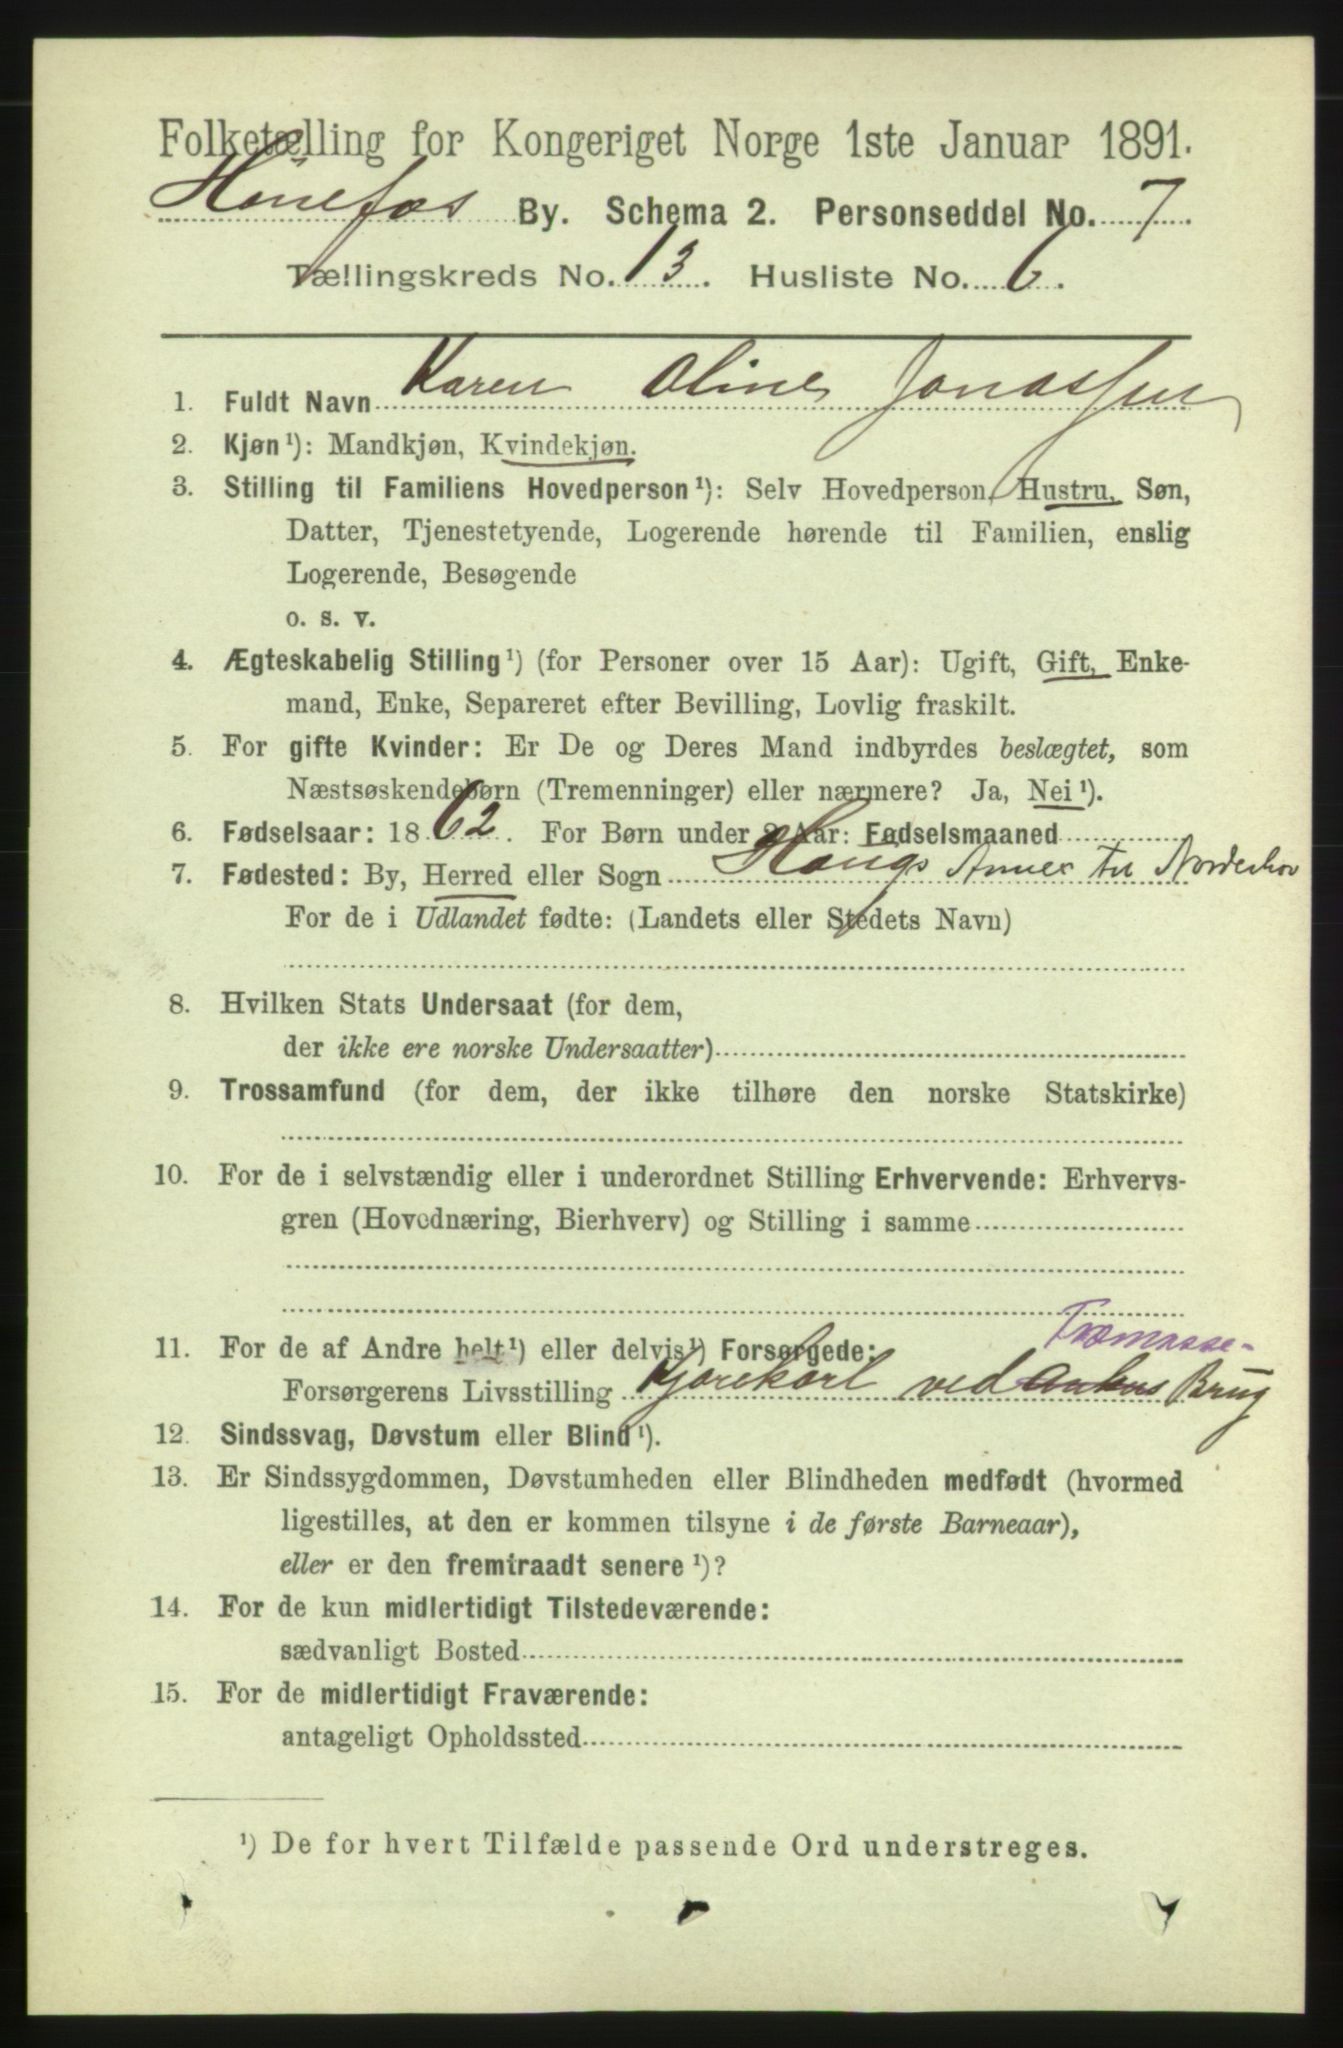 Folketælling for Kongeriget Norge 1ste Januar 1891.
Hønefos By. Schema 2. Personseddel No. 7.
Tællingskreds No. 13. Husliste No. 6.
1. Fuldt Navn Karen Oline Jonassen
2. Kjøn ¹): Mandkjøn, Kvindekjøn.
3. Stilling til Familiens Hovedperson ¹): Selv Hovedperson, Hustru, Søn,
Datter, Tjenestetyende, Logerende hørende til Familien, enslig
Logerende, Besøgende
o. s. v.
4. Ægteskabelig Stilling ¹) (for Personer over 15 Aar): Ugift, Gift, Enke-
mand, Enke, Separeret efter Bevilling, Lovlig fraskilt.
5. For gifte Kvinder: Er De og Deres Mand indbyrdes beslægtet, som
Næstsøskendebørn (Tremenninger) eller nærmere? Ja, Nei ¹).
6. Fødselsaar: 1862. For Børn under 2 Aar: Fødselsmaaned
7. Fødested: By, Herred eller Sogn Haugs Annex til Norderhov
For de i Udlandet fødte: (Landets eller Stedets Navn)
8. Hvilken Stats Undersaat (for dem,
der ikke ere norske Undersaatter)
9. Trossamfund (for dem, der ikke tilhøre den norske Statskirke)
10. For de i selvstændig eller i underordnet Stilling Erhvervende: Erhvervs-
gren (Hovednæring, Bierhverv) og Stilling i samme
Træmasse-
11. For de af Andre helt ¹) eller delvis ¹) Forsørgede:
Forsørgerens Livsstilling Kjørekarl ved Brug
12. Sindssvag, Døvstum eller Blind ¹).
13. Er Sindssygdommen, Døvstumheden eller Blindheden medfødt (hvormed
ligestilles, at den er kommen tilsyne i de første Barneaar),
eller er den fremtraadt senere ¹)?
14. For de kun midlertidigt Tilstedeværende:
sædvanligt Bosted
15. For de midlertidigt Fraværende:
antageligt Opholdssted
¹) De for hvert Tilfælde passende Ord understreges.